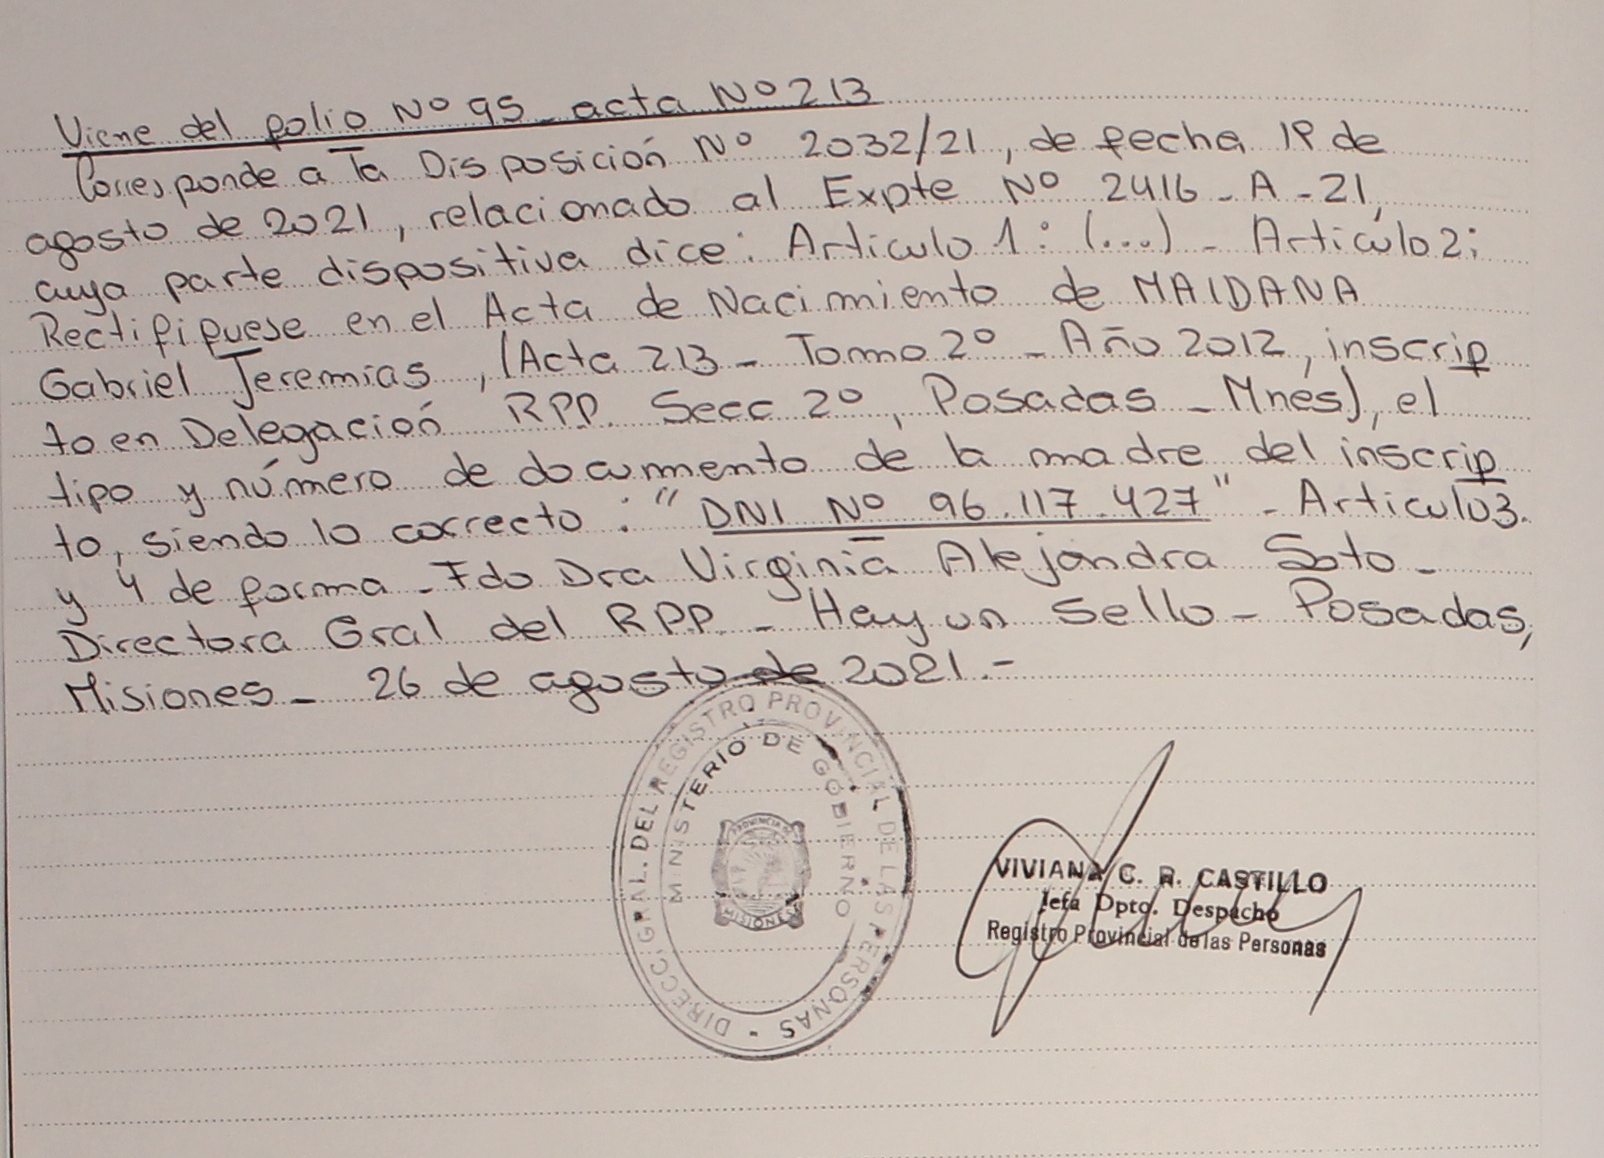 Viene del folio Nº 95 - acta Nº 213
Corresponde a la Disposición Nº 2032/21, de fecha 19 de
agosto de 2021, relacionado al Expte Nº 2416 - A - 21,
cuya parte dispositiva dice: Artículo 1: (...) - Artículo 2:
Rectifíquese en el Acta de Nacimiento de MAIDANA
Gabriel Jeremias, (Acta 213 - Tomo 2º - Año 2012, inscrip
to en Delegación RPP. Secc 2º, Posadas - Mnes), el
tipo y número de documento de la madre del inscrip
to, siendo lo correcto: "DNI Nº 96.117.427" - Articulo 3.
y 4 de forma - Fdo Dra Virginia Alejandra Soto -
Directora Gral del RPP - Hay un Sello - Posadas,
Misiones - 26 de agosto de 2021.-
DIRECC. GRAL. DEL REGISTRO PROVINCIAL DE LAS PERSONAS
MINISTERIO DE GOBIERNO
PROVINCIA DE
MISIONES
VIVIANA C. R. CASTILLO
Jefa Dpto. Despacho
Registro Provincial de las Personas